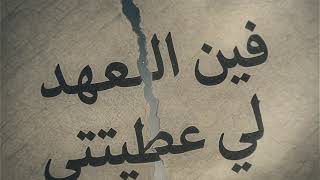 فين العهد
لي عطيتتي